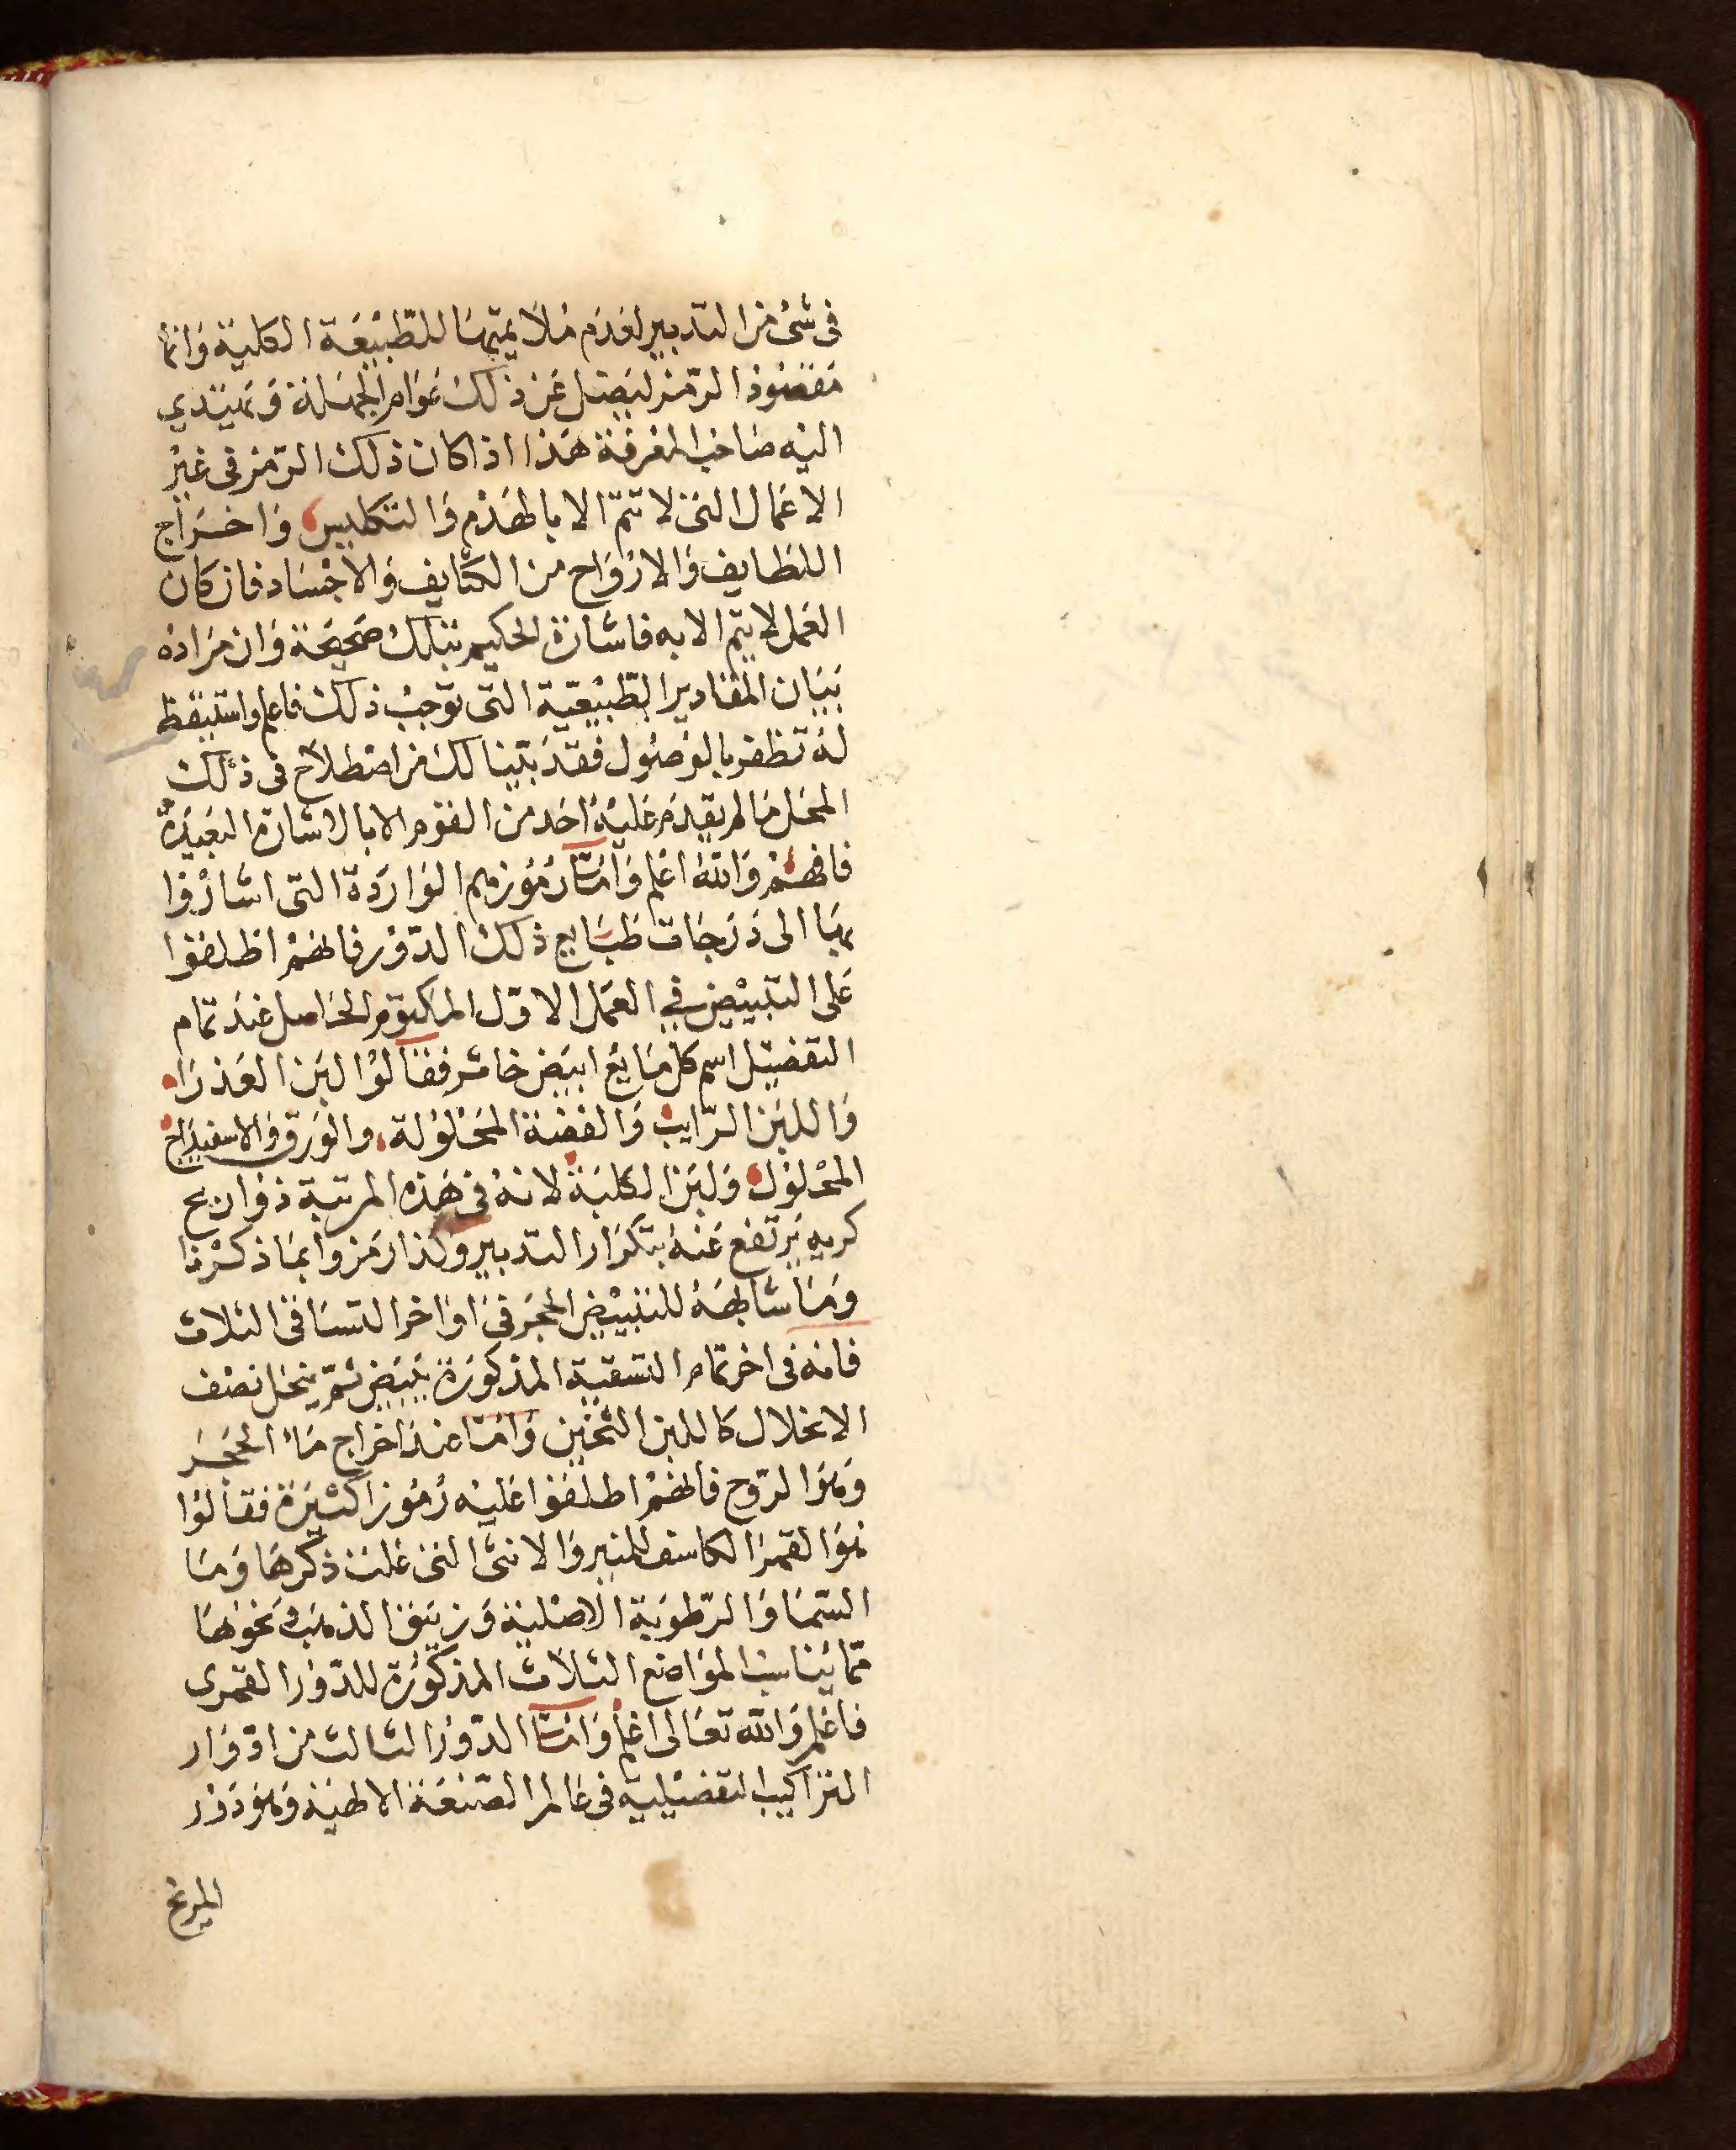 فى شئ من التدبير لعدم ملايمتها للطبيعة الكلية وانما
مقصود الرمز ليضل عن ذلك عوام الجهلة ويهتدي
اليه صاحب المعرفة هذا اذا كان ذلك الرمز فى غير
الاعمال التى لا تتم الا بالهدم والتكليس واخراج
اللطايف والارواح من الكثايف والاجساد فان كان
العمل لا يتم الا به فاشارة الحكيم بتلك صحيحة وان مراده
ببيان المقادير الطبيعية التى توجب ذلك فاعلم واستيقظ
له تظفر بالوصول فقد بينا لك من اصطلاح فى ذلك
المحل ما لم يقدم عليه احد من القوم الا بالاشارة البعيدة
فافهم والله اعلم واما رموزهم الواردة التى اشاروا
بها الى درجات طبايع ذلك الدور فانهم اطلقوا
على التبييض في العمل الاول المكتوم الحاصل عند تمام
التفصيل اسم كل مايع ابيض خاثر فقالوا لبن العذرا
واللبن الرايب والفضة المحلولة والورق والاسفيداج
المحلول ولبن الكلبة لانه فى هذه المرتبة ذو اريح
كريه يرتفع عنه بتكرار التدبير وكذا رمزوا بما ذكرنا
وما شابهه للتبييض الحجر فى اواخر التساقى الثلاث
فانه فى اخر تمام التسقية المذكورة يبيض ثم ينحل نصف
الانحلال كاللبن الثخين واما عند اخراج ماء الحجر
وهو الروح فانهم اطلقوا عليه رموزا كثيرة فقالوا
هو القمر الكاسف للنير والانثى التى غلبت ذكرها وما
السما والرطوبة الاصلية وزيبق الذهب ونحوها
مما يناسب المواضع الثلاث المذكورة للدور القمرى
فاعلم والله تعالى اعلم واما الدور الثالث من ادوار
التراكيب التفصيلية فى عالم الصنعة الالهية وهو دور
المريخ